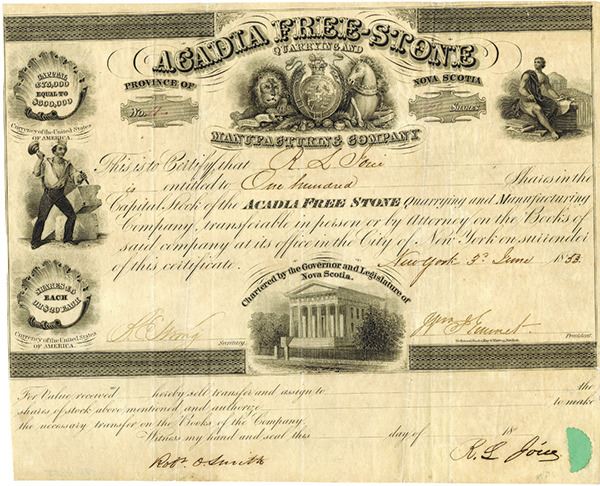 ACADIA FREE-STONE
QUARRYING AND
PROVINCE OF
NOVA SCOTIA
No.
Shares
MANUFACTURING COMPANY
CAPITAL
£75,000
EQUAL TO
$300,000
Currency of the United States
OF AMERICA.
This is to Certify, that R L
is entitled to One hundred Shares in the
Capital Stock of the ACADIA FREE STONE Quarrying and Manufacturing
Company, transferable in person or by Attorney on the Books of
said company at its office in the City of New York on surrender
of this certificate. New York 3d June 1853
SHARES
EACH
OR $20 EACH
Currency of the United States
OF AMERICA.
Chartered by the Governor and Legislature of
Nova Scotia.
Strong
Secretary
President
For Value received hereby sell transfer and assign to the
shares of stock above mentioned and authorize to make
the necessary transfer on the Books of the Company.
Witness my hand and seal this day of 18
Robt O Smith
R. L